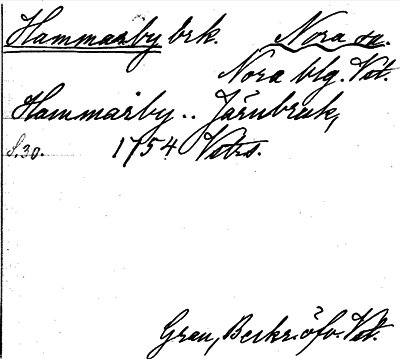 Hammarby brk. Nora sn.
Nora blg. Vst.
Hammarby.. Järnbruk,
S. 30. 1754 Vstrs.
Grau, Beskr. öfv. Vst.